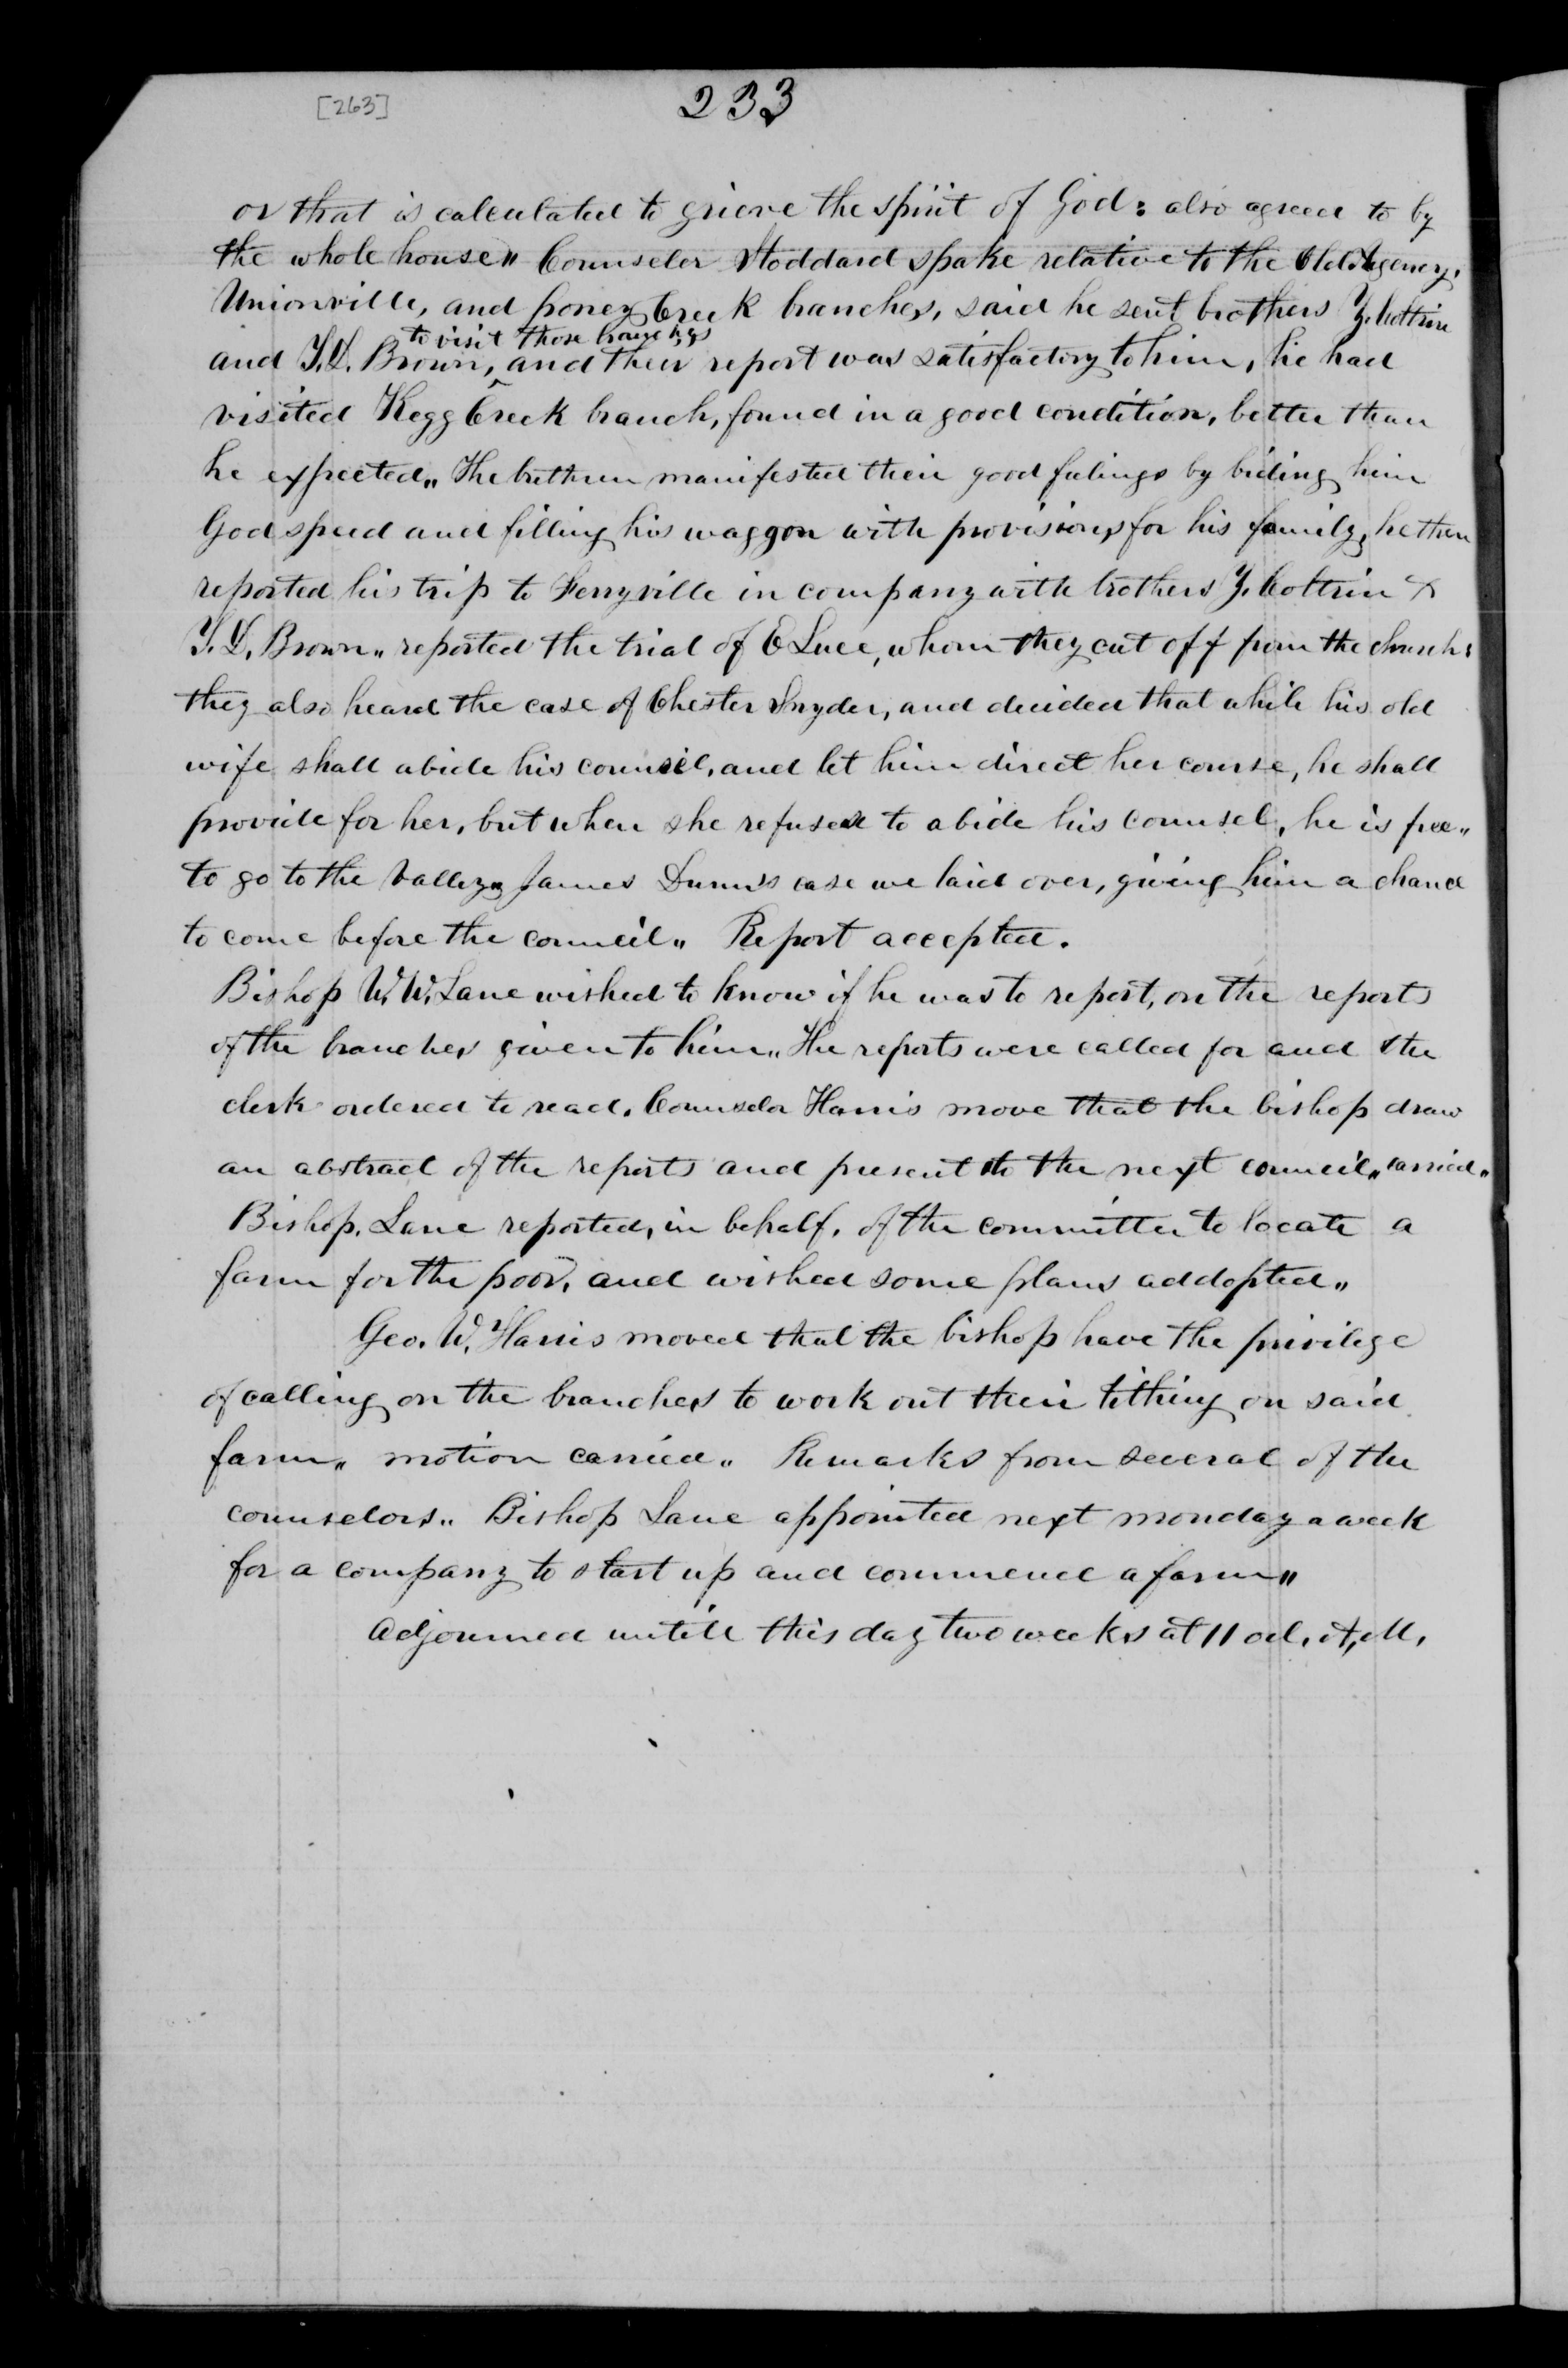 [263]
233
or that is calculated to grieve the spirit of God: also agreed to by
the whole house" Counseler Stoddard spake relative to the Old Agency,
Unionville, and poney Creek branches, said he sent brothers Z. Coltrin
to visit those branches
and Brown, and their report was satisfactory to him, he had
visited Kegg Creek branch, found in a good condition, better than
he expected" The brethren manifested their good feelings by biding him
God speed and filling his waggon with provisions for his family, he then
reported his trip to Ferryville in company with brothers Z. Coltrin &
Brown" reported the trial of E Luce, whom they cut off from the church:
they also heard the case of Chester Snyder, and decided that while his old
wife shall abide his counsel, and let him direct her course, he shall
provide for her, but when she refuses to abide his counsel, he is free"
to go to the Valley" James Dunn's case we laid over, giving him a chance
to come before the council" Report accepted.
Bishop W. W. Lane wished to know if he was to report, on the reports
of the branches given to him" The reports were called for and the
clerk ordered to read. Counselor Harris move that the bishop draw
an abstract of the reports and present to the next council" carried"
Bishop. Lane reported, in behalf, of the committee to locate a
farm for the poor, and wished some plans addopted"
Geo. W. Harris moved that the bishop have the privilege
of calling on the branches to work out their tithing on said
farm" motion carried" Remarks from several of the
counselors" Bishop Lane appointed next monday a week
for a company to start up and commence a farm"
Adjourned untill this day two weeks at 11 ocl. A, M,